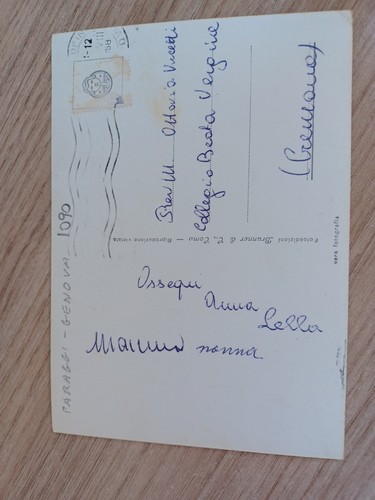 Ottavia
Collegio Beata Vergine
(Cremona)
Ossequi
Anna
Lella
Mamma nonna
PARAGGI - GENOVA 1090
Fotoedizioni Brunner & C., Como - Riproduzione vietata
vera fotografia
-12
VIII